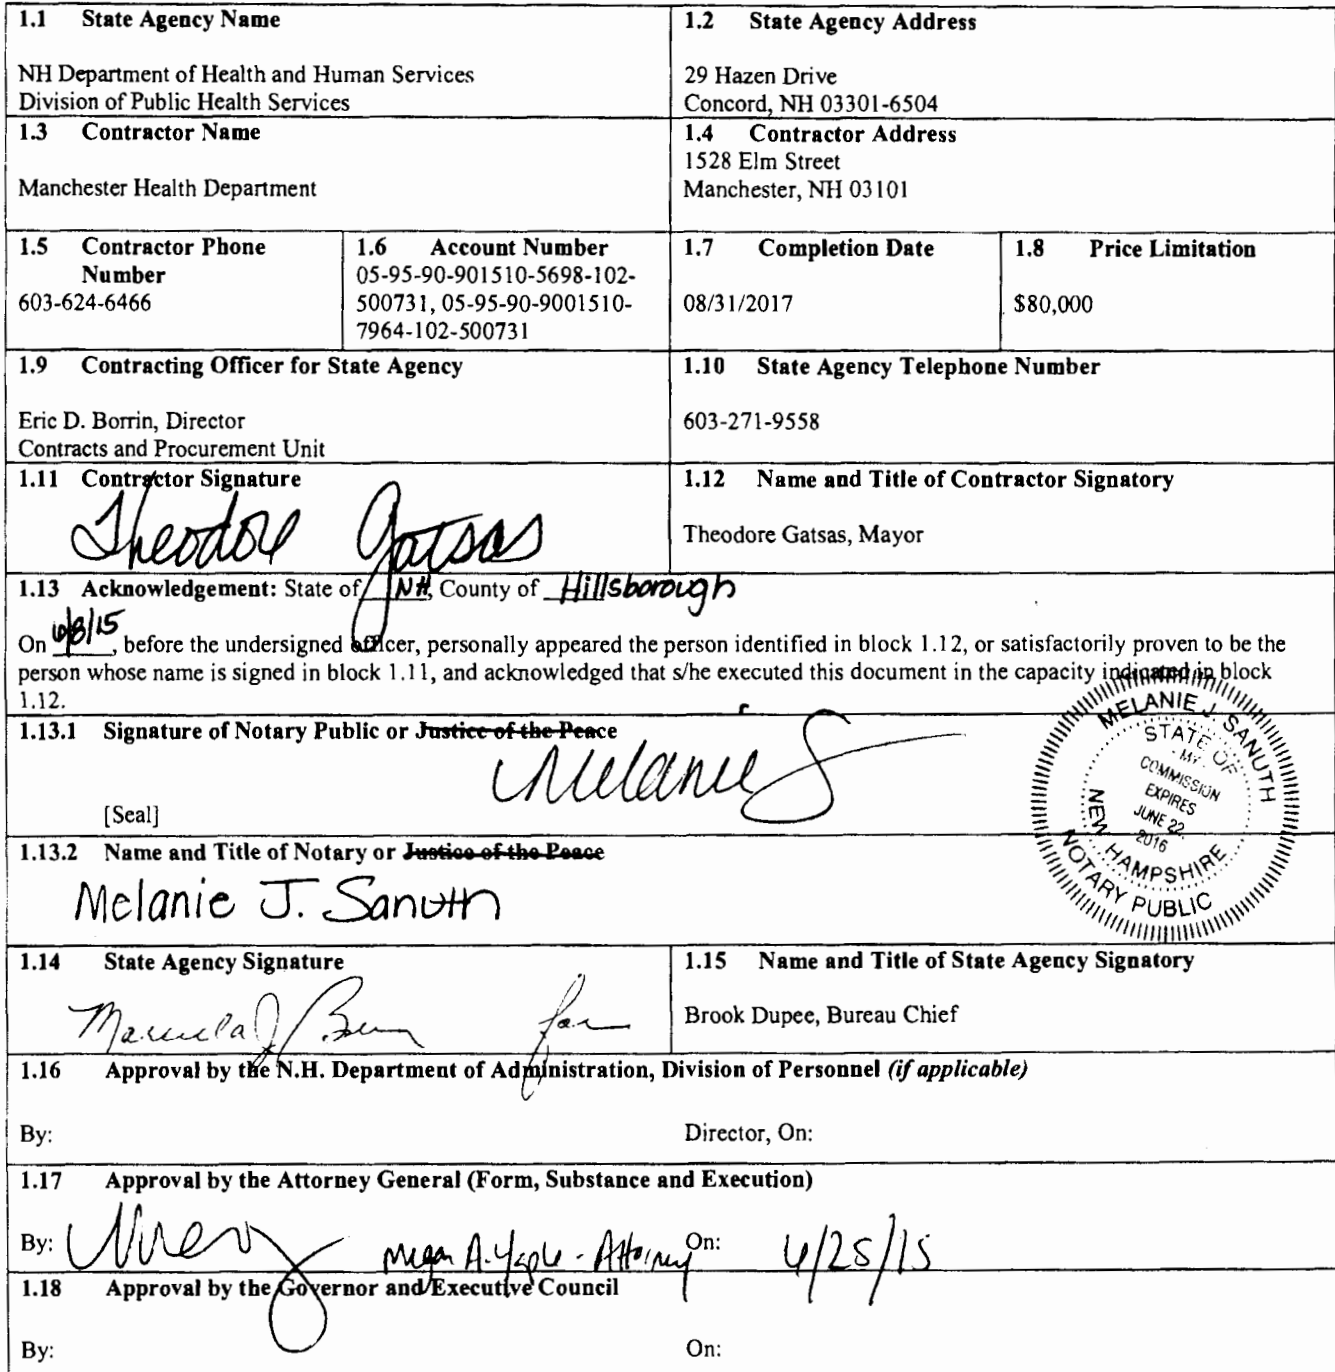 1.1 State Agency Name
NH Department of Health and Human Services
Division of Public Health Services
1.2 State Agency Address
29 Hazen Drive
Concord, NH 03301-6504
1.3 Contractor Name
Manchester Health Department
1.4 Contractor Address
1528 Elm Street
Manchester, NH 03101
1.5 Contractor Phone
Number
603-624-6466
1.6 Account Number
05-95-90-901510-5698-102-
500731, 05-95-90-9001510-
7964-102-500731
1.7 Completion Date
08/31/2017
1.8 Price Limitation
$80,000
1.9 Contracting Officer for State Agency
Eric D. Borrin, Director
Contracts and Procurement Unit
1.10 State Agency Telephone Number
603-271-9558
1.11 Contractor Signature
Theodore Gatsas
1.12 Name and Title of Contractor Signatory
Theodore Gatsas, Mayor
1.13 Acknowledgement: State of NH, County of Hillsborough
On 6/8/15, before the undersigned officer, personally appeared the person identified in block 1.12, or satisfactorily proven to be the
person whose name is signed in block 1.11, and acknowledged that s/he executed this document in the capacity indicated in block
1.12.
1.13.1 Signature of Notary Public or Justice of the Peace
Melanie S
[Seal]
MELANIE J. SANUTH
STATE OF
MY
COMMISSION
EXPIRES
JUNE 22,
2016
NEW HAMPSHIRE
NOTARY PUBLIC
1.13.2 Name and Title of Notary or Justice of the Peace
Melanie J. Sanuth
1.14 State Agency Signature
for
1.15 Name and Title of State Agency Signatory
Brook Dupee, Bureau Chief
1.16 Approval by the N.H. Department of Administration, Division of Personnel (if applicable)
By:
Director, On:
1.17 Approval by the Attorney General (Form, Substance and Execution)
By: Megan A. Yaple - Attorney On: 6/25/15
1.18 Approval by the Governor and Executive Council
By:
On: